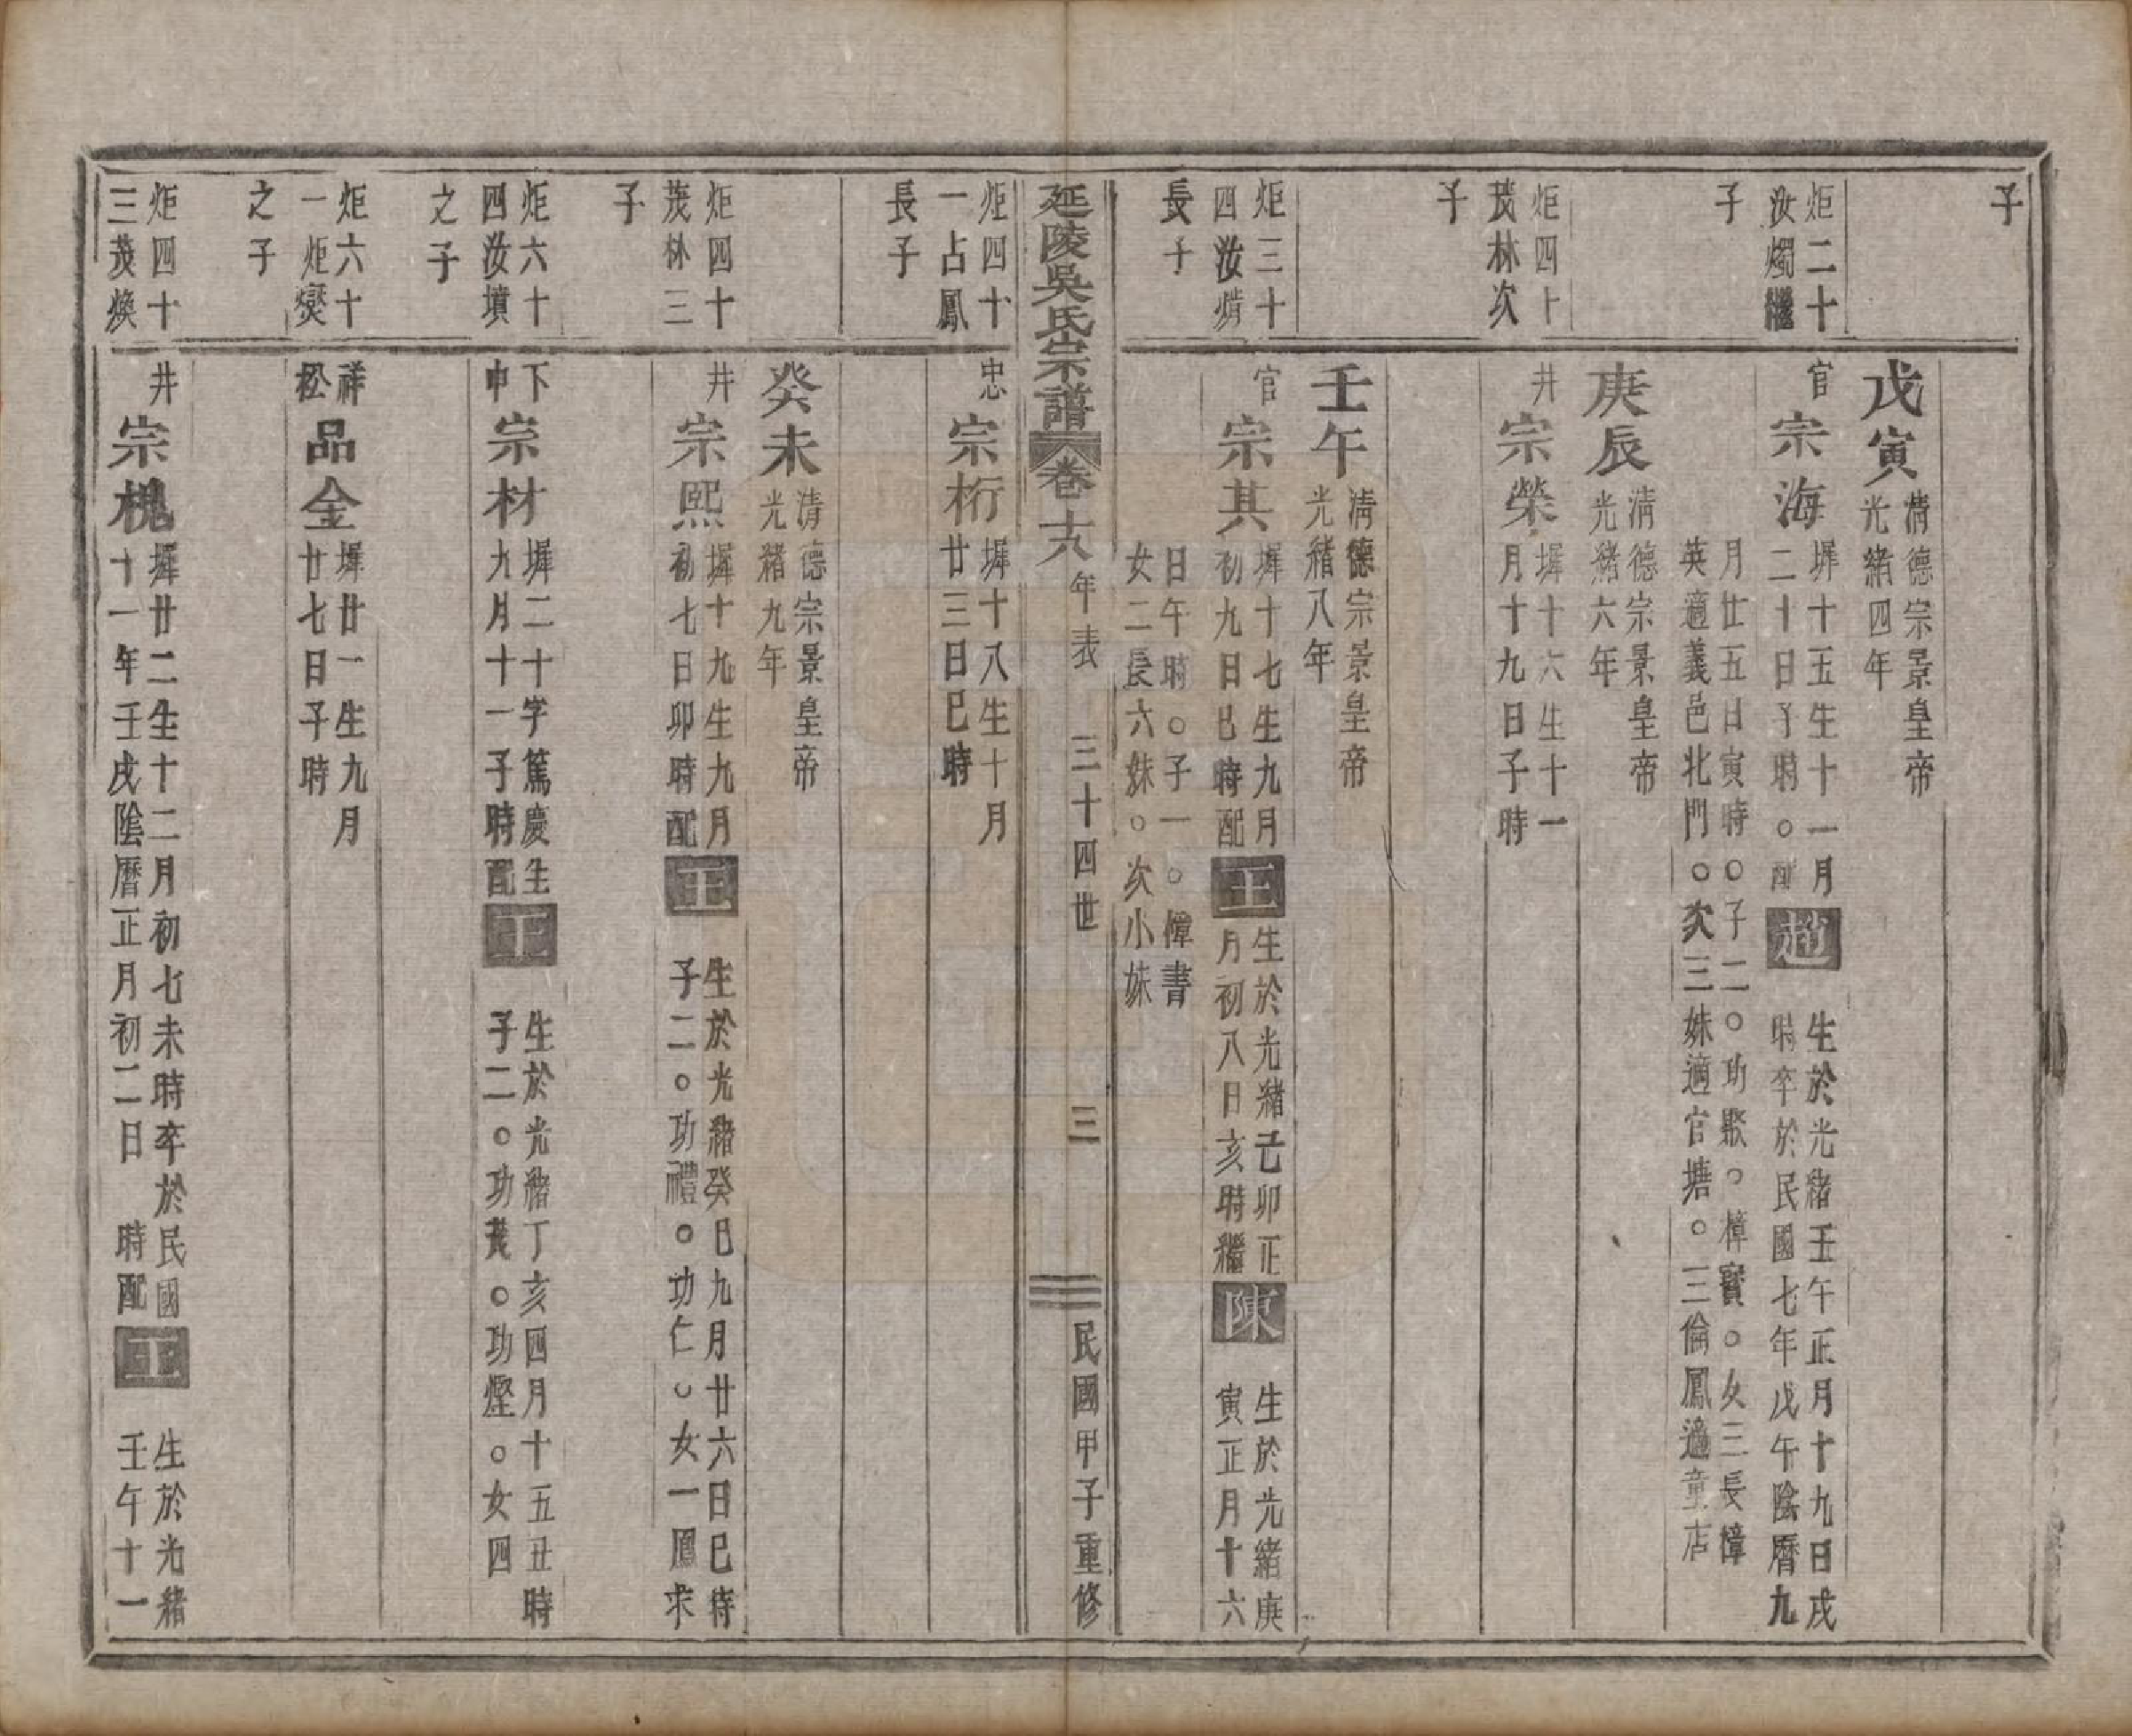 子
戊寅
清德宗景皇帝
光緒四年
炬二十
汝燭繼
子
官
宗海
墀十五生十一月
二十日子時○配
趙
生於光緒壬午正月十九日戌
時卒於民國七年戊午陰曆九
月廿五日寅時○子二○功聚○樟寳○女三長樟
英適義邑北門○次三妹適官塘○三倫鳳適童店
庚辰
清德宗景皇帝
光緒六年
炬四十
茂林次
子
井
宗榮
墀十六生十一
月十九日子時
壬午
清德宗景皇帝
光緒八年
炬三十
四汝焇
長子
官
宗其
墀十七生九月
初九日巳時配
王
生於光緒己卯正
月初八日亥時繼
陳
生於光緒庚
寅正月十六
日午時○子一○偉書
女二長六妹○次小妹
延陵吳氏宗譜
卷十八
年表
三十四世
三
民國甲子重修
炬四十
一占鳳
長子
忠
宗桁
墀十八生十月
廿三日巳時
癸未
清德宗景皇帝
光緒九年
炬四十
茂林三
子
井
宗熙
墀十九生九月
初七日卯時配
王
生於光緒癸巳九月廿六日巳待
子二○功禮○功仁○女一鳳求
炬六十
四汝墳
之子
下
申
宗材
墀二十字篤慶生
九月十一子時配
王
生於光緒丁亥四月十五丑時
子二○功茂○功煙○女四
炬六十
一炬爕
之子
祥
松
品金
墀廿一生九月
廿七日子時
炬四十
三茂煥
井
宗槐
墀廿二生十二月初七未時卒於民國
十一年壬戌陰曆正月初二日 時配
王
生於光緒
壬午十一